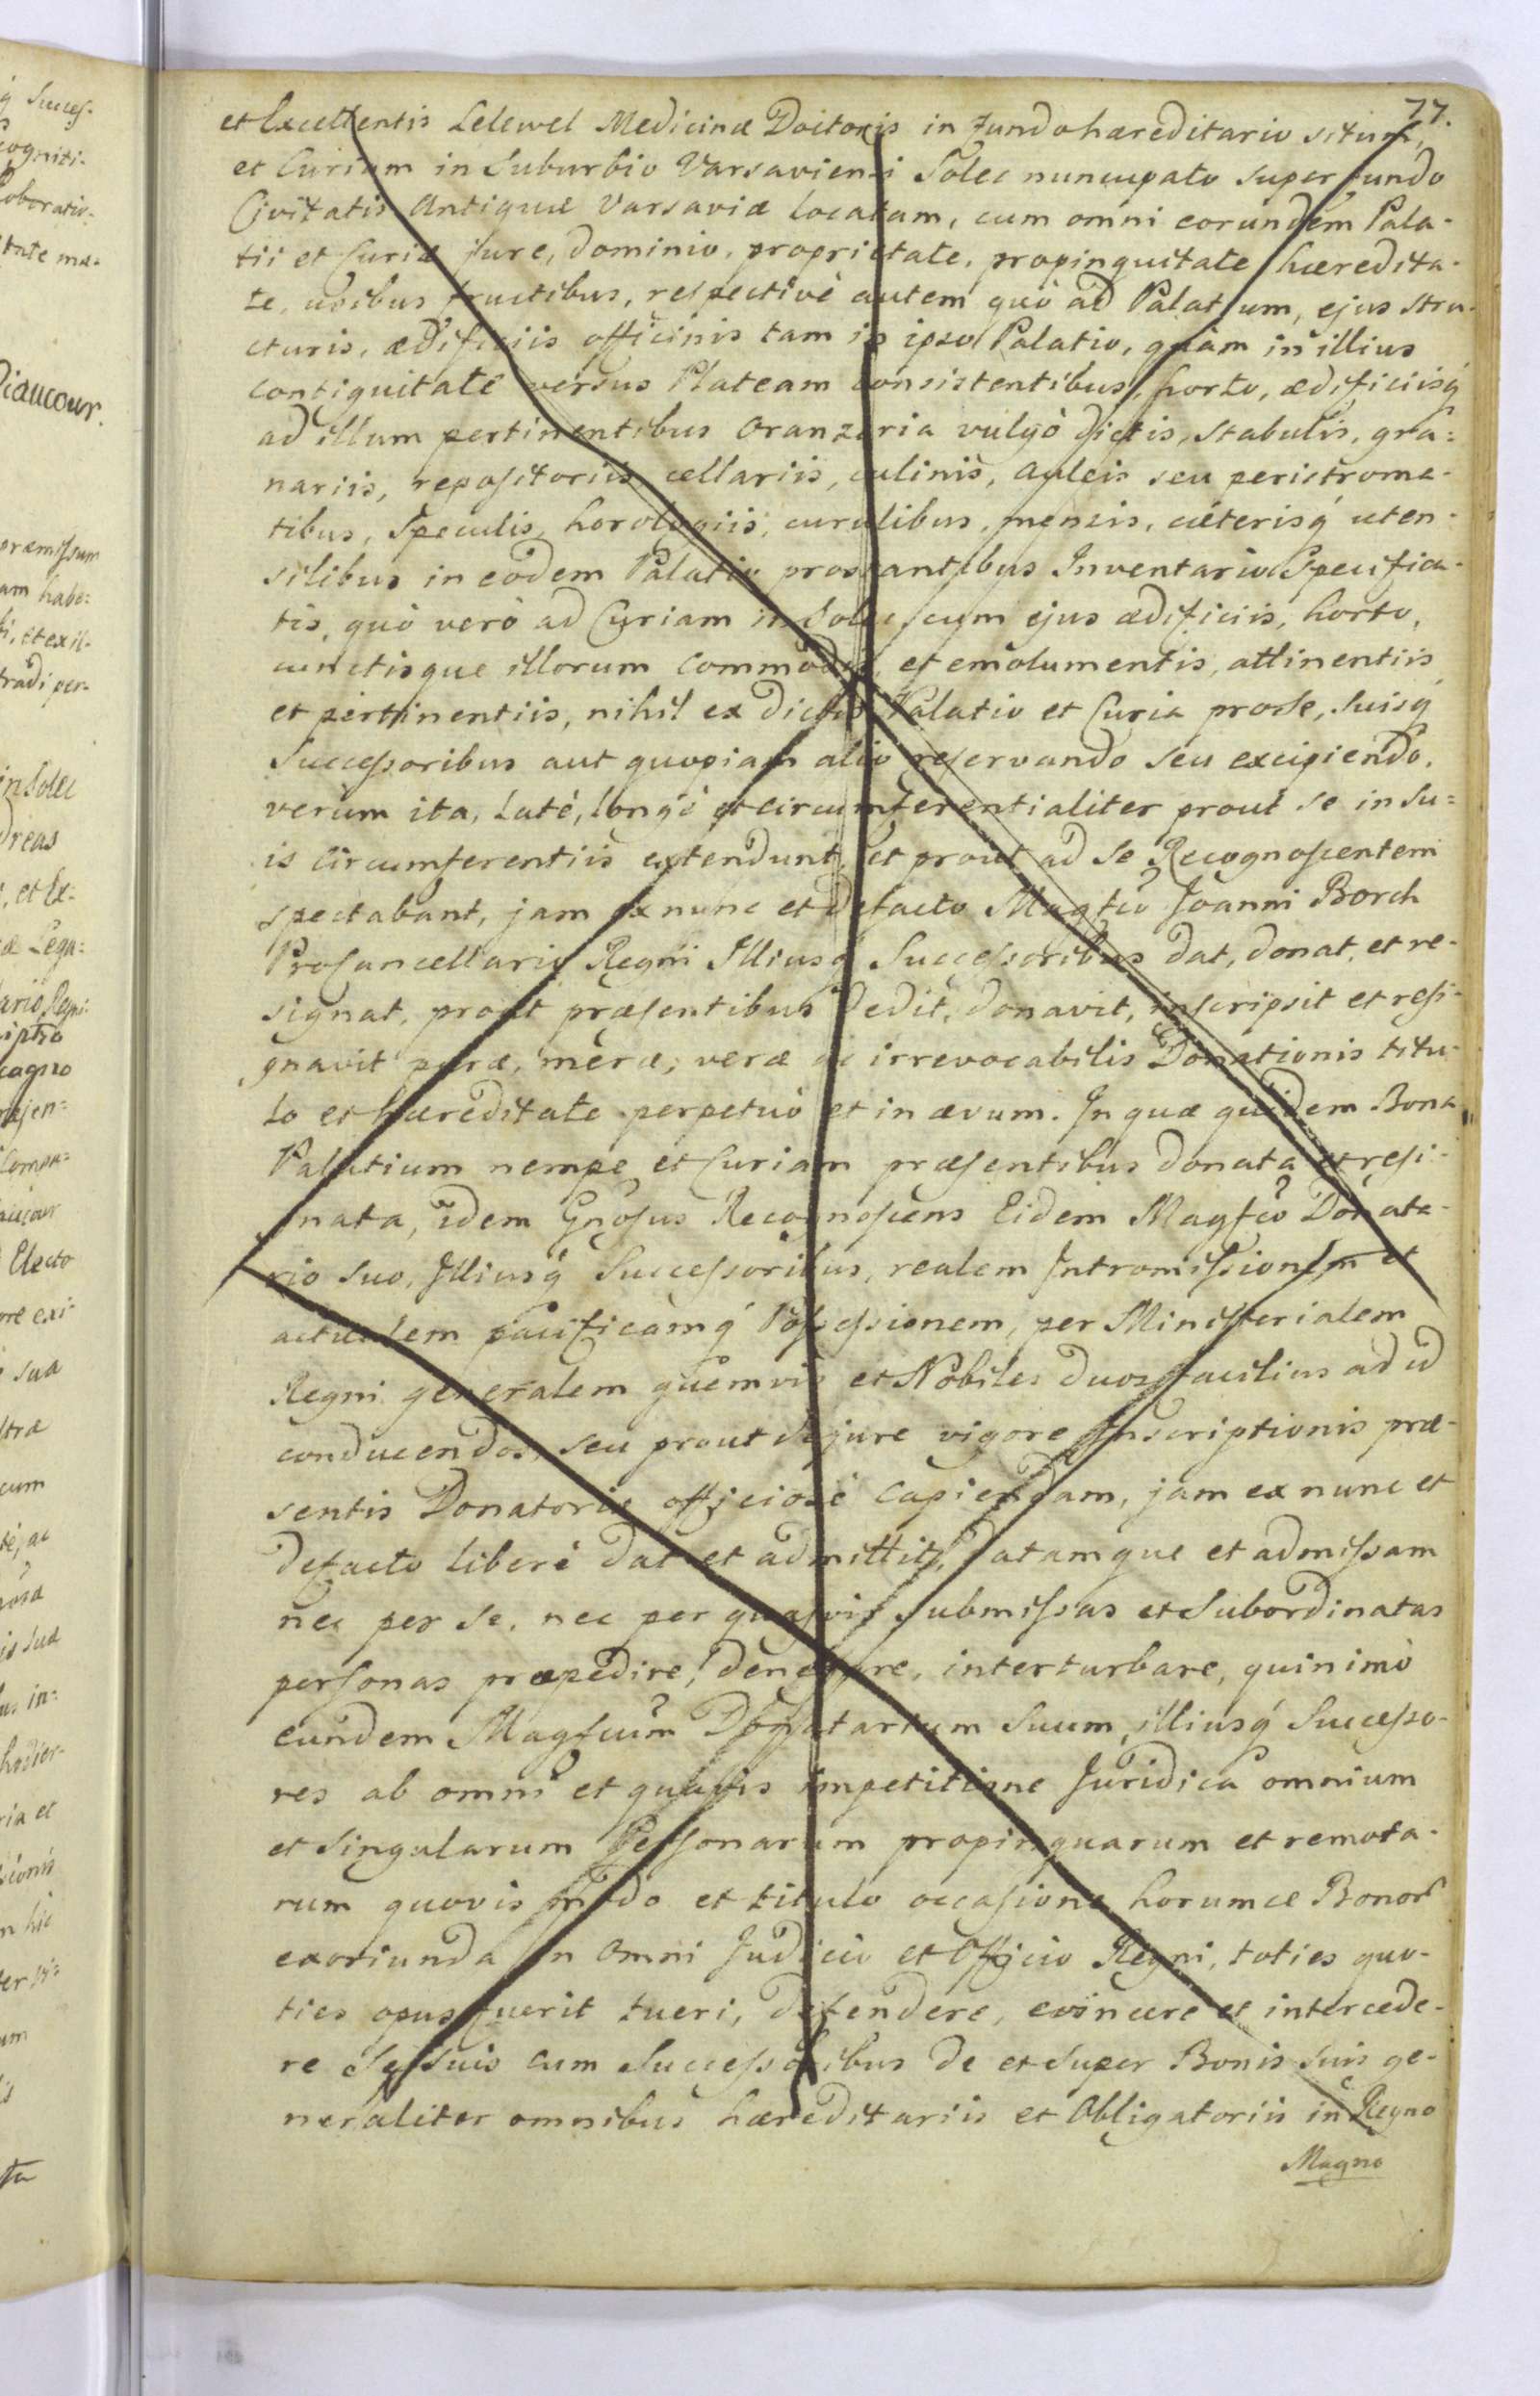 77.
et Excellentis Lelewel Medicinæ Doctoris in Fundo hæreditario situm,
et Curiam in Suburbio Varsaviensi Solec nuncupato super fundo
Civitatis Antiquæ Varsaviæ locatam, cum omni eorundem Pala-
tii et Curiæ jure, dominio, proprietate, propinquitate hæredita-
te, usibus fructibus, respectivè autem quò ad Palatium, ejus stru-
cturis, ædificiis officinis tam in ipso Palatio, quàm in illius
contiguitate versus Plateam consistentibus, horto, ædificiisq́
ad illum pertinentibus Oranzeria vulgò dictis, stabulis, gra=
nariis, repositoriis cellariis, culinis, Auleis seu peristroma-
tibus, Speculis, horologiis, curulibus, mensis, cæterisq́ uten-
silibus in eodem Palatio prostantibus Inventario Specifica-
tis, quò verò ad Curiam in Solec, cum ejus ædificiis, horto,
cunctisque illorum commodis, et emolumentis, attinentiis
et pertinentiis, nihil ex dictis Palatio et Curia pro se, suisq́
Successoribus aut quopiam alio reservando seu excipiendo,
verùm ita, latè, longè et circumferentialiter prout se in su=
is circumferentiis extendunt, et prout ad se Recognoscentem
spectabant, jam ex nunc et de facto Magfco Joanni Borch
Procancellario Regni Illiusq́ Successoribus dat, donat, et re-
signat, prout præsentibus dedit, donavit, inscripsit et resi-
gnavit puræ, meræ, veræ ac irrevocabilis Donationis titu-
lo et hæreditate perpetuò et in ævum. In quæ quidem Bona
Palatium nempe et Curiam præsentibus donata et resi-
gnata, idem Gnosus Recognoscens Eidem Magfco Donata-
rio suo, Illiusq́ Successoribus, realem Intromissionem et
actualem pacificamq́ Possessionem, per Ministerialem
Regni generalem quemvis et Nobiles duos facilius ad id
conducendos, seu prout de jure vigore Inscriptionis præ-
sentis Donatoriæ officiosè capiendam, jam ex nunc et
de facto liberè dat et admittit, datamque et admissam
nec per se, nec per quasvis submissas et subordinatas
personas præpedire, denegare, interturbare, quinimò
eundem Magfcum Donatarium suum, illiusq́ Successo-
res ab omni et quavis impetitione Juridica omnium
et singularum Personarum propinquarum et remota-
rum quovis modo et titulo occasione horumce Bonor
exoriunda in omni Judicio et Officio Regni, toties quo-
ties opus fuerit tueri, defendere, evincere et intercede-
re se suis cum Successoribus de et super Bonis suis ge-
neraliter omnibus hæreditariis et Obligatoriis in Regno
Magno